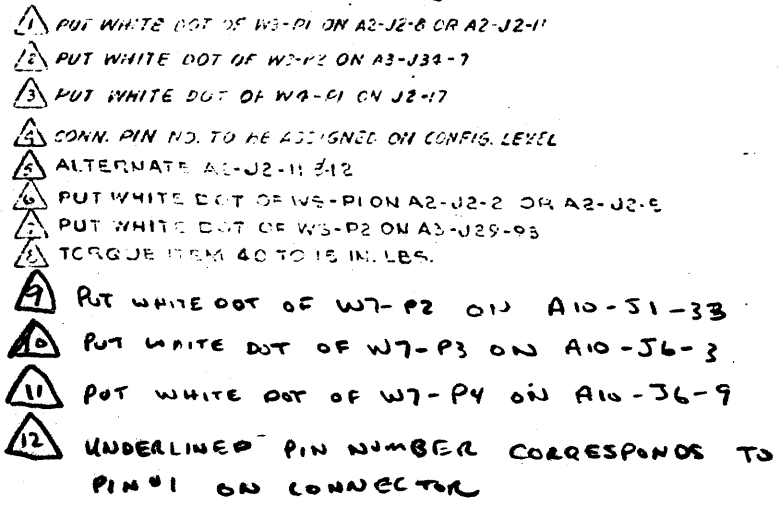 1 PUT WHITE DOT OF W3-P1 ON A2-J2-8 OR A2-J2-11
2 PUT WHITE DOT OF W3-P2 ON A3-J34-7
3 PUT WHITE DOT OF W4-P1 ON J2-17
4 CONN. PIN NO. TO BE ASSIGNED ON CONFIG. LEVEL
5 ALTERNATE A2-J2-11 & 12
6 PUT WHITE DOT OF W5-P1 ON A2-J2-2 OR A2-J2-5
7 PUT WHITE DOT OF W3-P2 ON A3-J29-93
8 TORQUE ITEM 40 TO 15 IN. LBS.
9 PUT WHITE DOT OF W7-P2 ON A10-J1-33
10 PUT WHITE DOT OF W7-P3 ON A10-J6-3
11 PUT WHITE DOT OF W7-P4 ON A10-J6-9
12 UNDERLINED PIN NUMBER CORRESPONDS TO
PIN #1 ON CONNECTOR